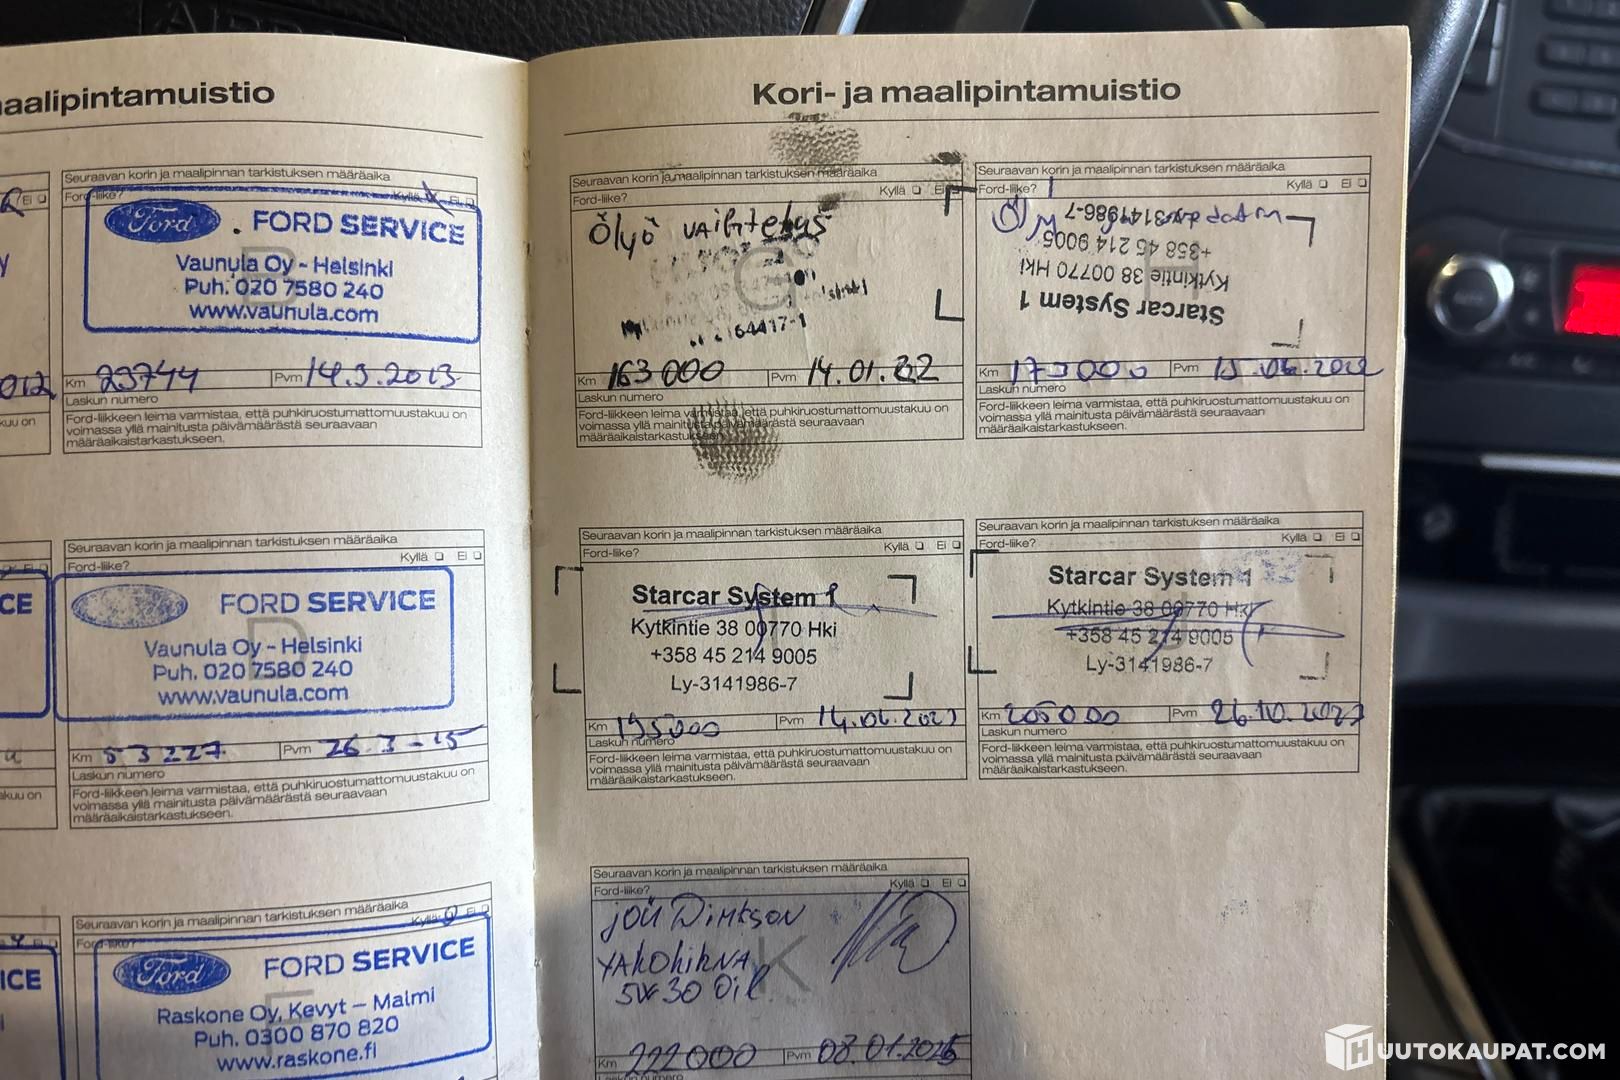 maalipintamuistio
Seuraavan korin ja maalipinnan tarkistuksen määräaika
Ford-liike? Kyllä Ei
Ford . FORD SERVICE
Vaunula Oy - Helsinki
Puh. 020 7580 240
www.vaunula.com
Km 23744 Pvm 14.3.2013
Laskun numero
Ford-liikkeen leima varmistaa, että puhkiruostumattomuustakuu on
voimassa yllä mainitusta päivämäärästä seuraavaan
määräaikaistarkastukseen.
Seuraavan korin ja maalipinnan tarkistuksen määräaika
Kyllä Ei
Ford-liike?
FORD SERVICE
D
Vaunula Oy - Helsinki
Puh. 020 7580 240
www.vaunula.com
Km 53227 Pvm 26.3-15
Laskun numero
Ford-liikkeen leima varmistaa, että puhkiruostumattomuustakuu on
voimassa yllä mainitusta päivämäärästä seuraavaan
määräaikaistarkastukseen.
Seuraavan korin ja maalipinnan tarkistuksen määräaika
Kyllä Ei
Ford-liike?
Ford FORD SERVICE
Raskone Oy, Kevyt – Malmi
Puh. 0300 870 820
www.raskone.fi
Kori- ja maalipintamuistio
Seuraavan korin ja maalipinnan tarkistuksen määräaika
Kyllä Ei
Ford-liike?
Öljyö vaihtetus
G
64417-1
Km 163000 Pvm 14.01.22
Laskun numero
Ford-liikkeen leima varmistaa, että puhkiruostumattomuustakuu on
voimassa yllä mainitusta päivämäärästä seuraavaan
määräaikaistarkastukseen.
Seuraavan korin ja maalipinnan tarkistuksen määräaika
Kyllä Ei
Ford-liike?
Starcar System 1
Kytkintie 38 00770 Hki
+358 45 214 9005
Ly-3141986-7
Km 173000 Pvm 15.06.2022
Laskun numero
Ford-liikkeen leima varmistaa, että puhkiruostumattomuustakuu on
voimassa yllä mainitusta päivämäärästä seuraavaan
määräaikaistarkastukseen.
Seuraavan korin ja maalipinnan tarkistuksen määräaika
Kyllä Ei
Ford-liike?
Starcar System 1
Kytkintie 38 00770 Hki
+358 45 214 9005
Ly-3141986-7
Km 195000 Pvm 14.06.2023
Laskun numero
Ford-liikkeen leima varmistaa, että puhkiruostumattomuustakuu on
voimassa yllä mainitusta päivämäärästä seuraavaan
määräaikaistarkastukseen.
Seuraavan korin ja maalipinnan tarkistuksen määräaika
Kyllä Ei
Ford-liike?
Starcar System 1
Kytkintie 38 00770 Hki
+358 45 214 9005
Ly-3141986-7
Km 205000 Pvm 26.10.2023
Laskun numero
Ford-liikkeen leima varmistaa, että puhkiruostumattomuustakuu on
voimassa yllä mainitusta päivämäärästä seuraavaan
määräaikaistarkastukseen.
Seuraavan korin ja maalipinnan tarkistuksen määräaika
Kyllä Ei
Ford-liike?
K
5W30 Oil
Km 222000 Pvm 08.01.2025
Laskun numero
HUUTOKAUPAT.COM